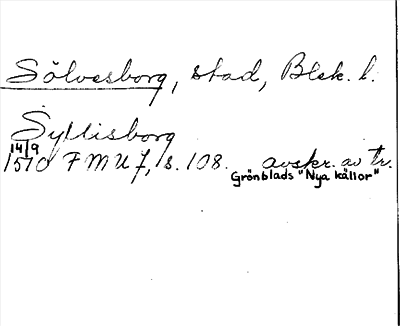 Sölvesborg, stad, Blek. l.
Syllisborg
14/9
1510 F M U 7, s. 108. avskr. av tr.
Grönblads "Nya källor"